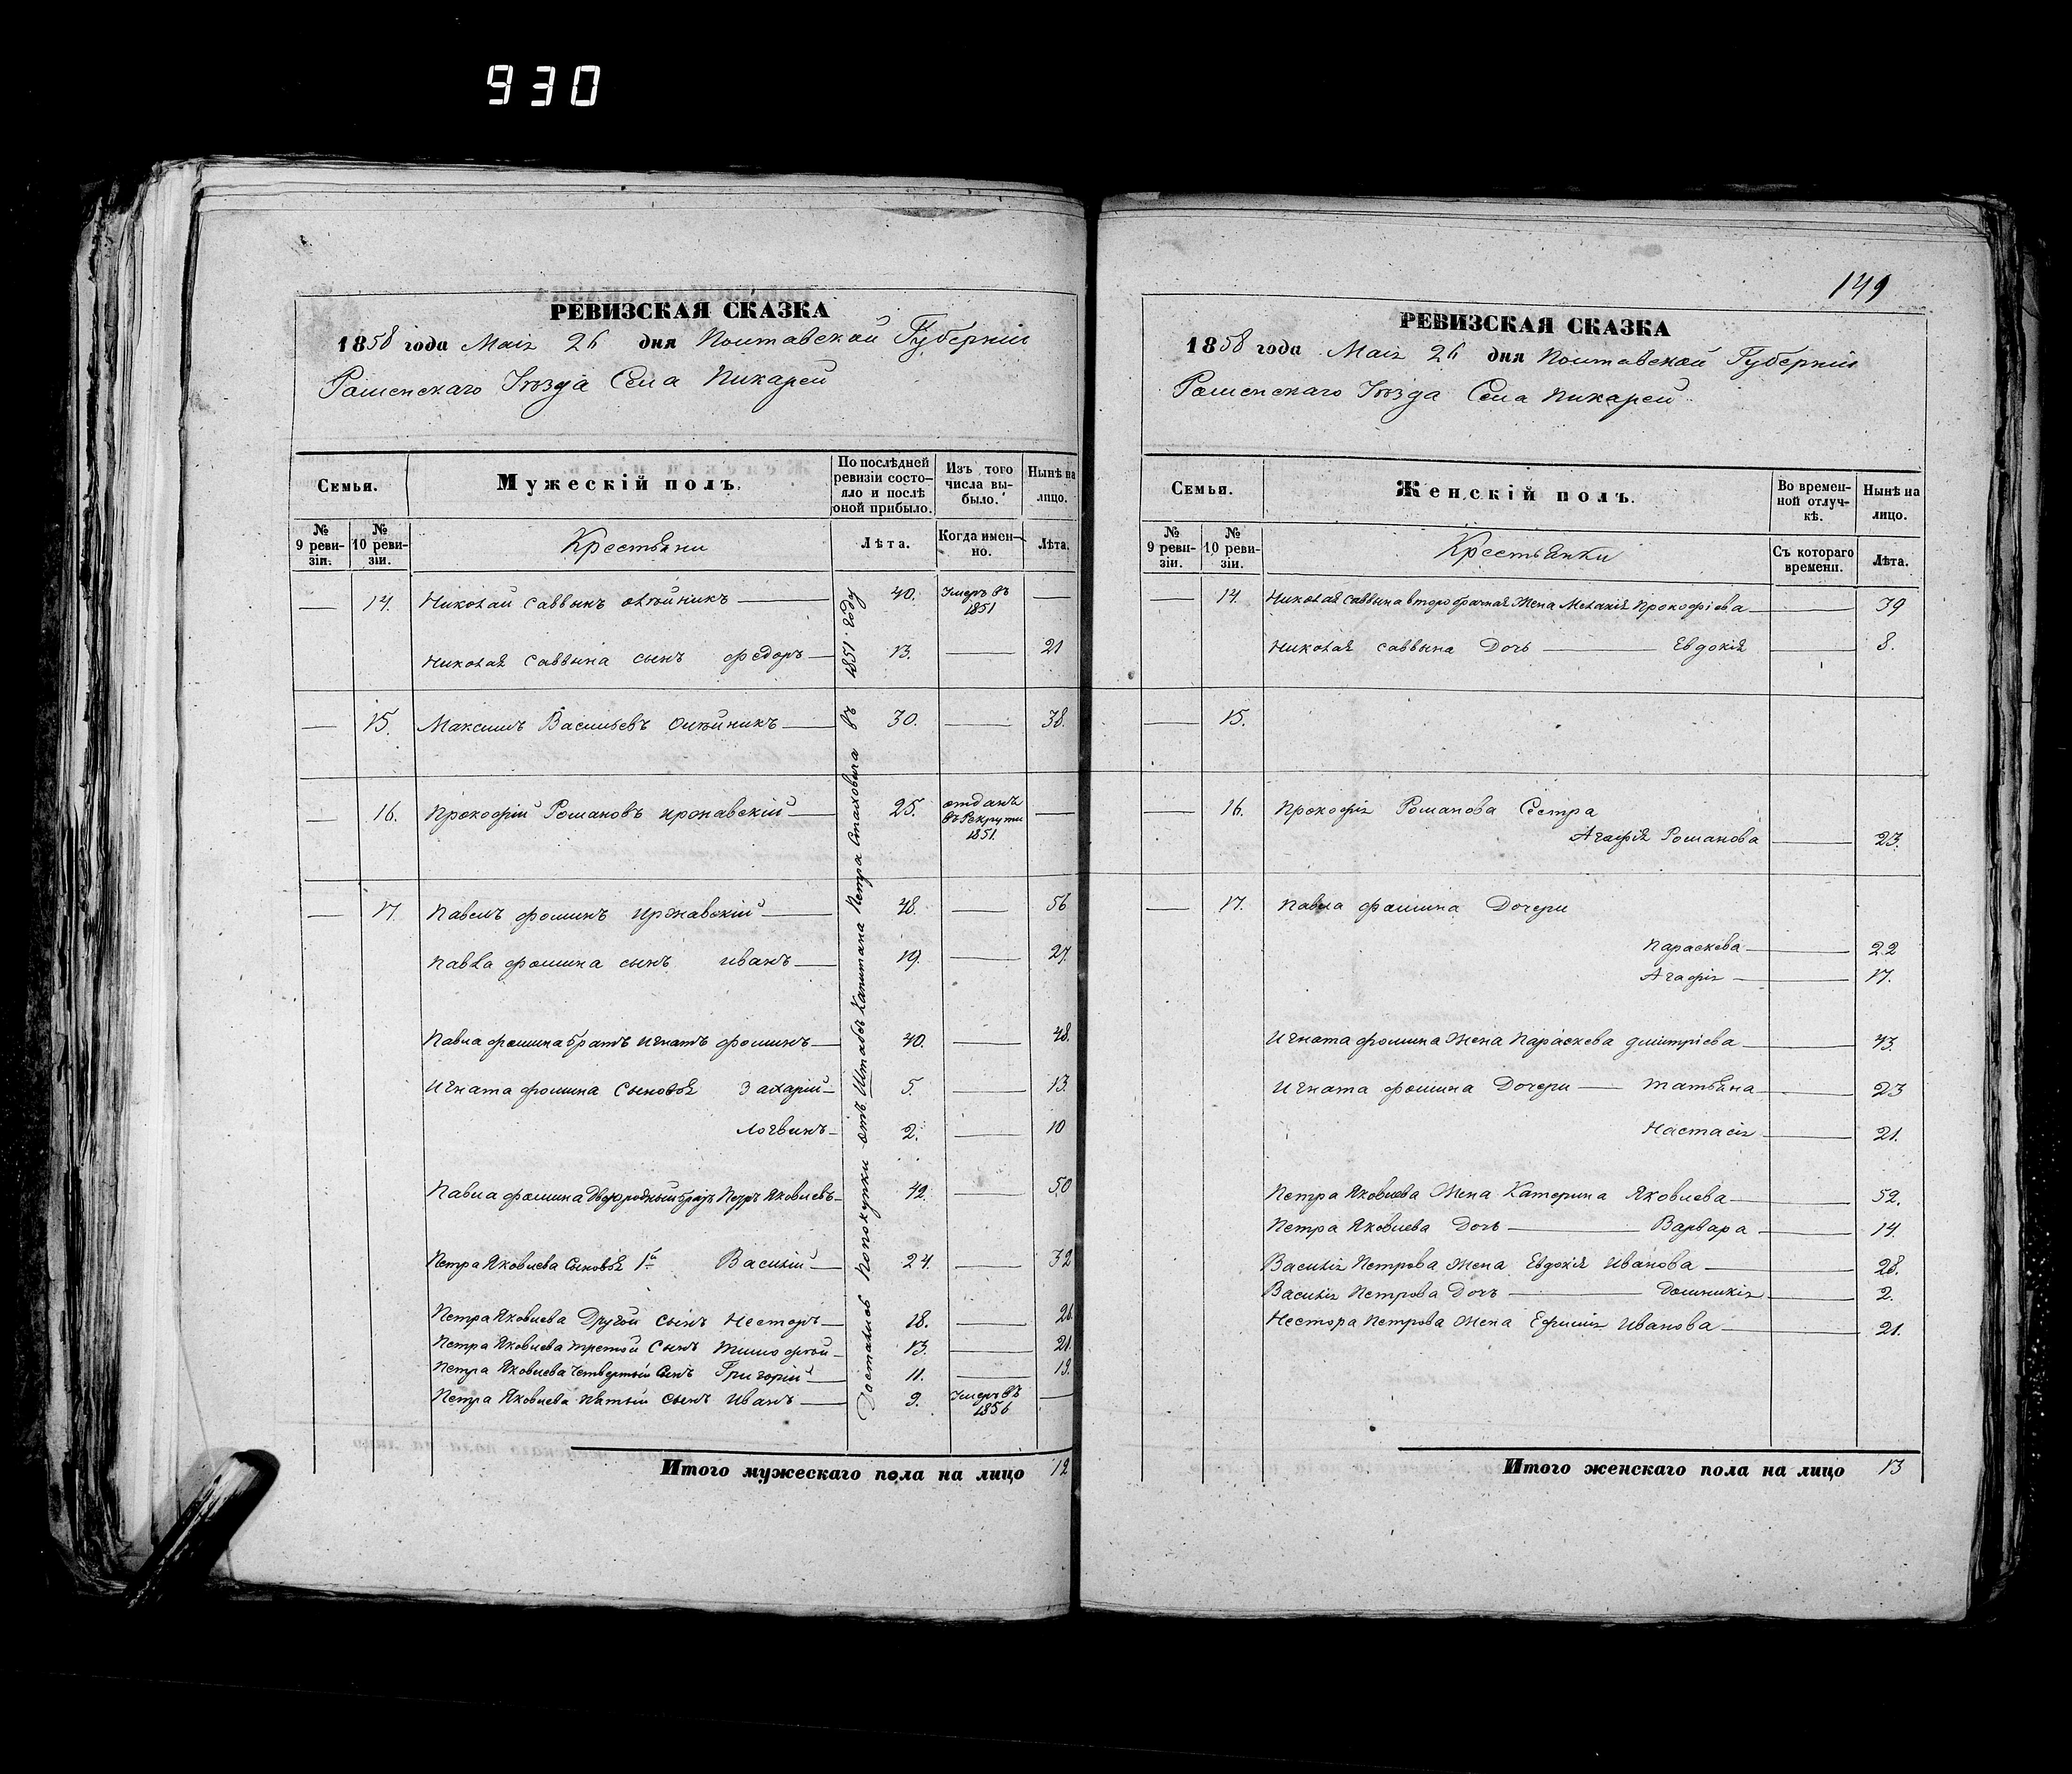 930
РЕВИЗСКАЯ СКАЗКА
1858 года Маія 26 дня Полтавской Губерніи
Роменскаго Уѣзда Села Пикарей
Семьи.
Мужескій полъ.
По послѣдней ревизіи состояло и послѣ оной прибыло.
Изъ того числа выбыло.
Нынѣ на лицо.
№ 9 ревизіи.
№ 10 ревизіи.
Крестьяни
Лѣта.
Когда именно.
Лѣта.
— 14. Николай Саввинъ Олѣйникъ — 40. Умеръ въ 1851 —
Николая Саввина сынъ Федоръ — 13. — 21
— 15. Максимъ Васильевъ Олѣйникъ — 30. — 38.
— 16. Прокофій Романовъ Иржавскій — 25. отданъ въ Рекруты 1851. —
— 17. Павелъ Фоминъ Иржавскій — 48. — 56
Павла Фомина сынъ Иванъ — 19. — 27.
Павла Фомина братъ Игнатъ Фоминъ — 40. — 48.
Игната Фомина Сыновья Захарій — 5. — 13.
Логвинъ — 2. — 10
Павла Фомина Двоюродный братъ Петръ Яковлевъ — 42. — 50
Петра Яковлева Сыновья 1й Василій — 24. — 32
Петра Яковлева Другой Сынъ Несторъ — 18. — 26.
Петра Яковлева третій Сынъ Тимофей — 13. — 21.
Петра Яковлева Четвертый Сынъ Григорій — 11. — 19.
Петра Яковлева пятый сынъ Иванъ — 9. Умеръ въ 1856 —
Достались по покупки отъ Штабсъ Капитана Петра Стаховича въ 1851 году
Итого мужескаго пола на лицо 12
149
РЕВИЗСКАЯ СКАЗКА
1858 года Маія 26 дня Полтавской Губерніи
Роменскаго Уѣзда Села Пикарей
Семьи.
Женскій полъ.
Во временной отлучкѣ.
Нынѣ на лицо.
№ 9 ревизіи.
№ 10 ревизіи.
Крестьянки
Съ котораго времени.
Лѣта.
— 14. Николая Саввина второбрачная Жена Меланія Прокофіева — 39
Николая Саввина Дочь — Евдокія — 8.
— 15.
— 16. Прокофія Романова Сестра
Агафія Романова — 23.
— 17. Павла Фомина Дочери
Параскева — 22
Агафія — 17.
Игната Фомина Жена Параскева Дмитріева — 43.
Игната Фомина Дочери — Татьяна — 23
Настасія — 21.
Петра Яковлева Жена Катерина Яковлева — 52.
Петра Яковлева Дочь — Варвара — 14.
Василія Петрова Жена Евдокія Иванова — 28.
Василія Петрова Дочь — Домникія — 2.
Нестора Петрова Жена Ефимія Иванова — 21.
Итого женскаго пола на лицо 13